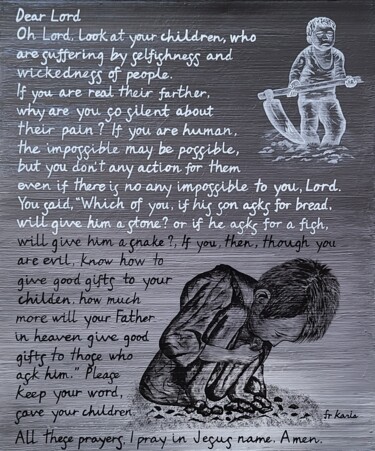 Dear Lord
Oh Lord. Look at your children, who
are suffering by selfishness and
wickedness of people.
If you are real their farther,
why are you so silent about
their pain? If you are human,
the impossible may be possible,
but you don't any action for them
even if there is no any impossible to you, Lord.
You said, "Which of you, if his son asks for bread,
will give him a stone? or if he asks for a fish,
will give him a snake?, If you, then, though you
are evil, know how to
give good gifts to your
childen, how much
more will your Father
in heaven give good
gifts to those who
ask him." Please
Keep your word,
save your children.
fr Karla
All these prayers, I pray in Jesus name. Amen.